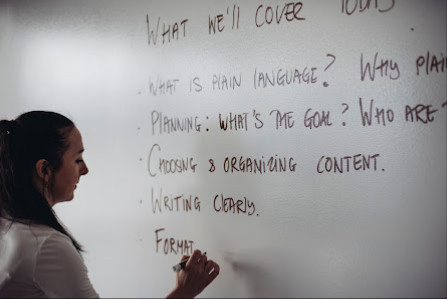 WHAT WE'LL COVER TODAY
· WHAT IS PLAIN LANGUAGE? WHY PLAI
· PLANNING: WHAT'S THE GOAL? WHO ARE
· CHOOSING & ORGANIZING CONTENT.
· WRITING CLEARLY.
· FORMAT